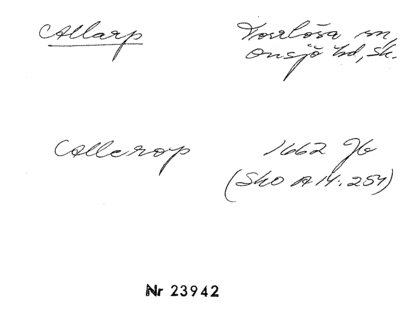 Allarp Torrlösa sn,
Onsjö hd, Sk.
Allerop 1662 Jb
(SkO A 14:254)
Nr 23942